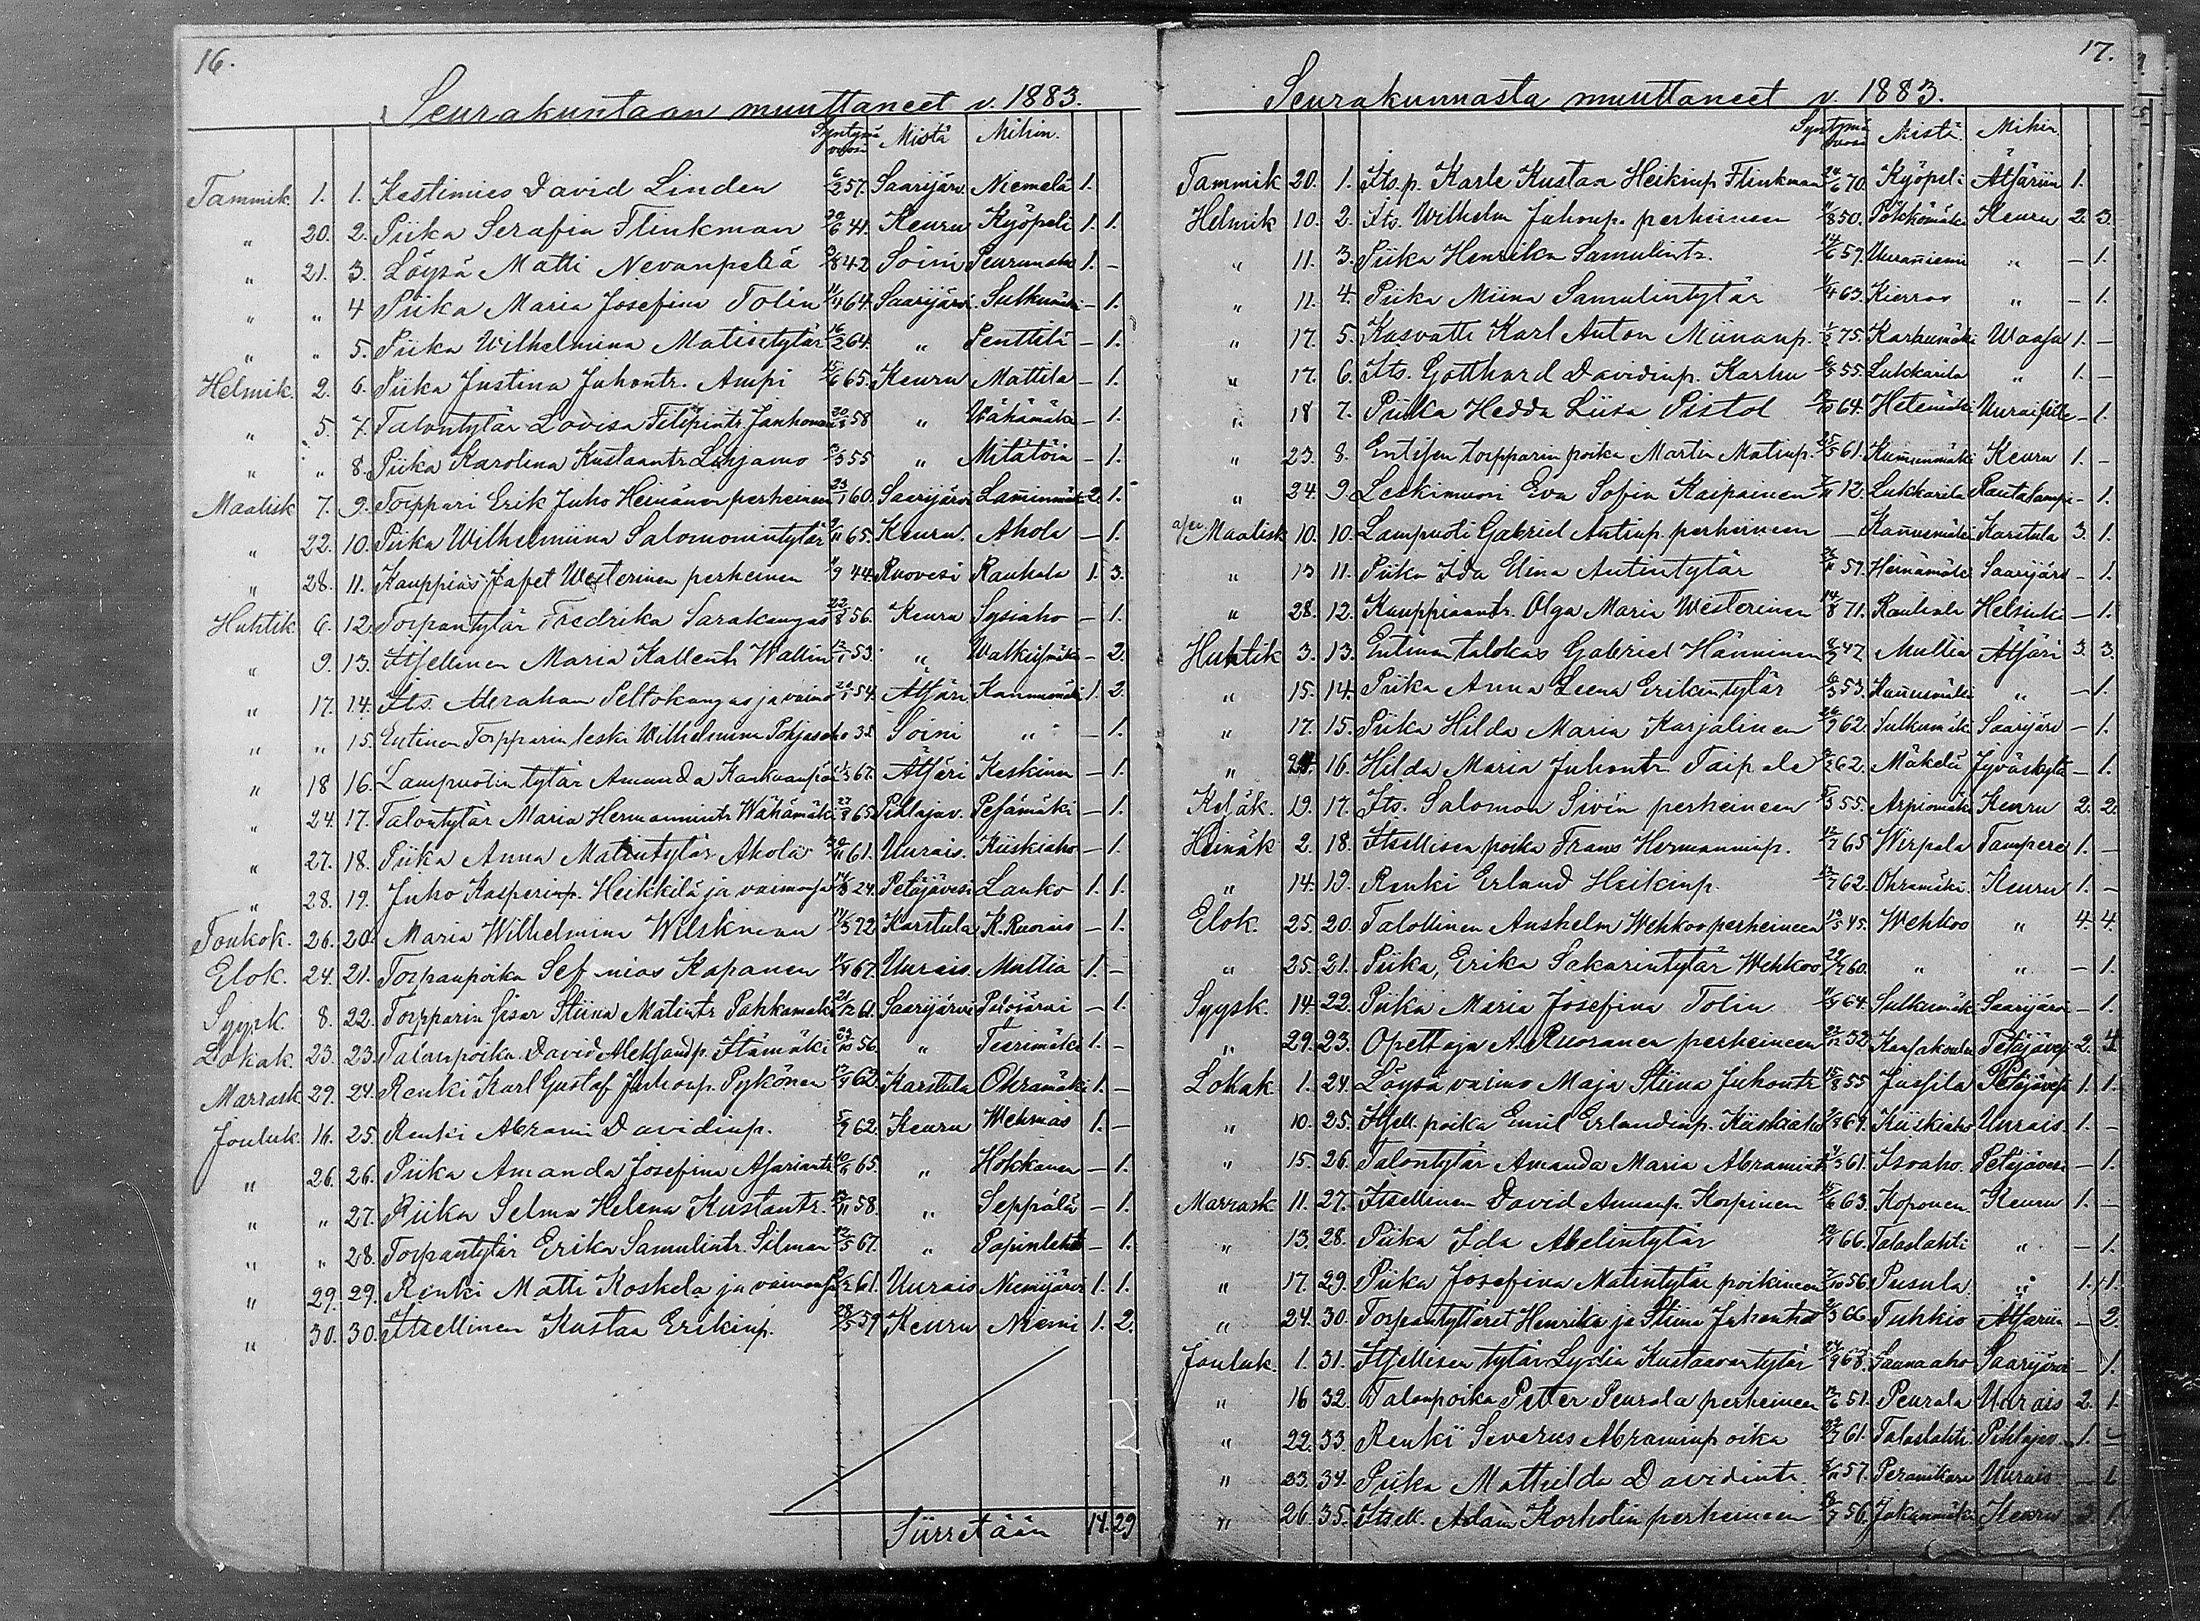 16.
Seurakuntaan muuttaneet v. 1883.
Syntymä vuosi Mistä Mihin.
Tammik. 1. 1. Kestimies David Linden 6/2 57. Saarijärv. Niemelä 1.
" 20. 2. Piika Serafia Flinkman 20/6 41. Keuru Kyöpeli 1. 1.
" 21. 3. Löysä Matti Nevanperä 842 Soini 1. –
" " 4 Piika Maria Josefina Tolin 11/4 64. Saarijärvi. Sulkumäki – 1.
" " 5. Piika Wilhelmina Matintytär 16/2 64. " Penttilä – 1.
Helmik. 2. 6. Piika Justina Juhontr. Ampi 15/6 65. Keuru Mattila – 1.
" 5. 7. Talontytär Lovisa Filipintr. Janhonen 58 " Wähämäki – 1.
" " 8. Piika Karolina Kustaantr. 3/3 55 " Mitätöin – 1.
Maalisk 7. 9. Torppari Erik Juho Heinänen perheineen 23/1 60. Saarijärvi Lamminmäki 2. 1.
" 22. 10. Piika Wilhelmiina Salomonintytär 9/11 65. Keuru. Ahola – 1.
" 28. 11. Kauppias Jafet Westerinen perheineen 9 44. Ruovesi Rauhala 1. 3.
Huhtik 6. 12. Torpantytär Fredrika Sarakangas 22/8 56. Keuru Sysiaho – 1.
" 9. 13. Itsellinen Maria Kallentr. Wallin 12/1 53. " – 2.
" 17. 14. Its. Abraham Peltokangas ja vaimo 20/1 54. Ätsäri. Kannusmäki 1. 2.
" " 15. Entinen Torpparin leski Wilhelmina 35 Soini " – 1.
" 18 16. Lampuotin tytär Amanda 67. Ätsäri Keskinen – 1.
" 24. 17. Talontytär Maria Hermannintr. Wähämäki 27/8 65 Pihlajav. Pesämäki – 1.
" 27. 18. Piika Anna Matintytär Ahola 30/11 61. Uurais. Kiiskiaho – 1.
" 28. 19. Juho Kasperinp. Heikkilä ja vaimonsa 24. Petäjävesi Lauko 1. 1.
Toukok. 26. 20. Maria Wilhelmina Wilskman 14/3 72 Karstula K. Ruorais – 1.
Elok. 24. 21. Torpanpoika Sef nias Kapanen 11/4 67. Uurais Multia 1. –
Syysk. 8. 22. Torpparin sisar Stiina Matintr. Pahkamäki 21/12 61. Saarijärvi – 1.
Lokak. 23. 23. Talonpoika David Aleksand p. Itämäki 23/10 56. " Teerimäki 1. –
Marrask. 29. 24. Renki Karl Gustaf Juhonp. Pykönen 12/4 62. Karstula Ohramäki 1. –
Jouluk. 16. 25. Renki Abram Davidinp. 5/7 62. Keuru Wehmas 1. –
" 26. 26. Piika Amanda Josefina Asariantr. 10/6 65. " Hokkanen – 1.
" " 27. Piika Selma Helena Kustantr. 58. " Seppälä – 1.
" " 28. Torpantytär Erika Samulintr. Silman 12/5 67. " Papinlahti – 1.
" 29. 29. Renki Matti Koskela ja vaimonsa 61. Uurais Niemijärvi 1. 1.
" 30. 30. Itsellinen Kustaa Erikinp. 28/5 59. Keuru Niemi 1. 2.
Siirretään 14. 29
17.
Seurakunnasta muuttaneet v. 1883.
Syntymä vuosi Mistä Mihin.
Tammik 20. 1. Its. p. Karle Kustaa Heikinp. Flinkman 24/6 70. Kyöpeli Ätsäriin 1.
Helmik 10. 2. Its. Wilhelm Juhonp. perheineen 11/8 50. Pökkömäki Keuru 2. 3.
" 11. 3. Piika Henrika Samulintr. 14/6 59. Uuraniemi " – 1.
" 11. 4. Piika Miina Samulintytär 11/4 63. Kierros " – 1.
" 17. 5. Kasvatti Karl Anton Miinanp. 1/5 75. Karhumäki Waasa 1. –
" 17. 6. Its. Gotthard Davidinp. Karhu 55. Lukkarila " 1. –
" 18 7. Piika Hedda Liisa Pistol 64. Hetemäki – 1.
" 23. 8. Entisen torpparin poika Martin Matinp. 25/5 61. Keuru 1. –
" 24. 9. Leskimuori Eva Sofia Kaipainen 12. Lukkarila Rautalampi – 1.
Maalisk 10. 10. Lampuoti Gabriel Antinp. perheineen – Kannusmäki Karstula 3. 1.
" 13 11. Piika Ida Elina Antintytär 57. Heinämäki Saarijärvi – 1.
" 28. 12. Kauppiaantr. Olga Maria Westerinen 14/8 71. Rauhala Helsinki – 1.
Huhtik 3. 13. Entinen talokas Gabriel Hänninen 47. Multia Ätsäri 3. 3.
" 15. 14. Piika Anna Leena Erikintytär 53. Kannusmäki " – 1.
" 17. 15. Piika Hilda Maria Karjalinen 26/9 62. Sulkumäki Saarijärvi – 1.
" 24. 16. Hilda Maria Juhontr Taipale 62. Mäkelä Jyväskylä – 1.
Kesäk. 19. 17. Its. Salomon Sivén perheineen 55. Arpiomäki Keuru 2. 2.
Heinäk 2. 18. Itsellisen poika Frans Hermanninp. 12/7 65 Wirpala Tampere 1. –
" 14. 19. Renki Erland Heikinp. 62. Ohramäki. Keuru 1. –
Elok. 25. 20. Talollinen Anshelm Wehkoo perheineen 19/3 45. Wehkoo " 4. 4.
" 25. 21. Piika, Erika Sakarintytär Wehkoo 60. " " – 1.
Syysk. 14. 22. Piika Maria Josefina Tolin 11/4 64. Sulkumäki Saarijärvi – 1.
" 29. 23. Opettaja A. Ruoranen perheineen 32 Kansakoulu Petäjäves. 2. 4
Lokak 1. 24. Löysä vaimo Maja Stiina Juhontr 15/8 55 Jussila Petäjäves. 1. 1.
" 10. 25. Itsell. poika Emil Erlandinp. Kiiskiaho 69. Kiiskiaho Uurais. 1. –
" 15. 26. Talontytär Amanda Maria Abramintr 61. Isoaho. Petäjävesi – 1.
Marrask. 11. 27. Itsellinen David Annanp. Korpinen 63. Koponen Keuru 1. –
" 13. 28. Piika Ida Abelintytär 66. Talaslahti " – 1.
" 17. 29. Piika Josefina Matintytär poikineen 7/10 56. Pusula " 1. 1.
" 24. 30. Torpantyttäret Henrika ja Stiina Juhontrt 66 Tuhkio Ätsäriin – 2.
Jouluk. 1. 31. Itsellisen tytär Lydia Kustaavantytär 68. Saunaaho Saarijärvi – 1.
" 16 32. Talonpoika Petter Peurala perheineen 12/6 51. Peurala Uurais 2. 1.
" 22. 33. Renki Severus Abraminpoika 61. Talaslahti. Pihlajav. 1. –
" 23. 34. Piika Mathilda Davidintr. 57. Uurais – 1
" 26 35. Itsell. Adam Korholin perheineen 56. Jokanmäki Keuru 3. 1.